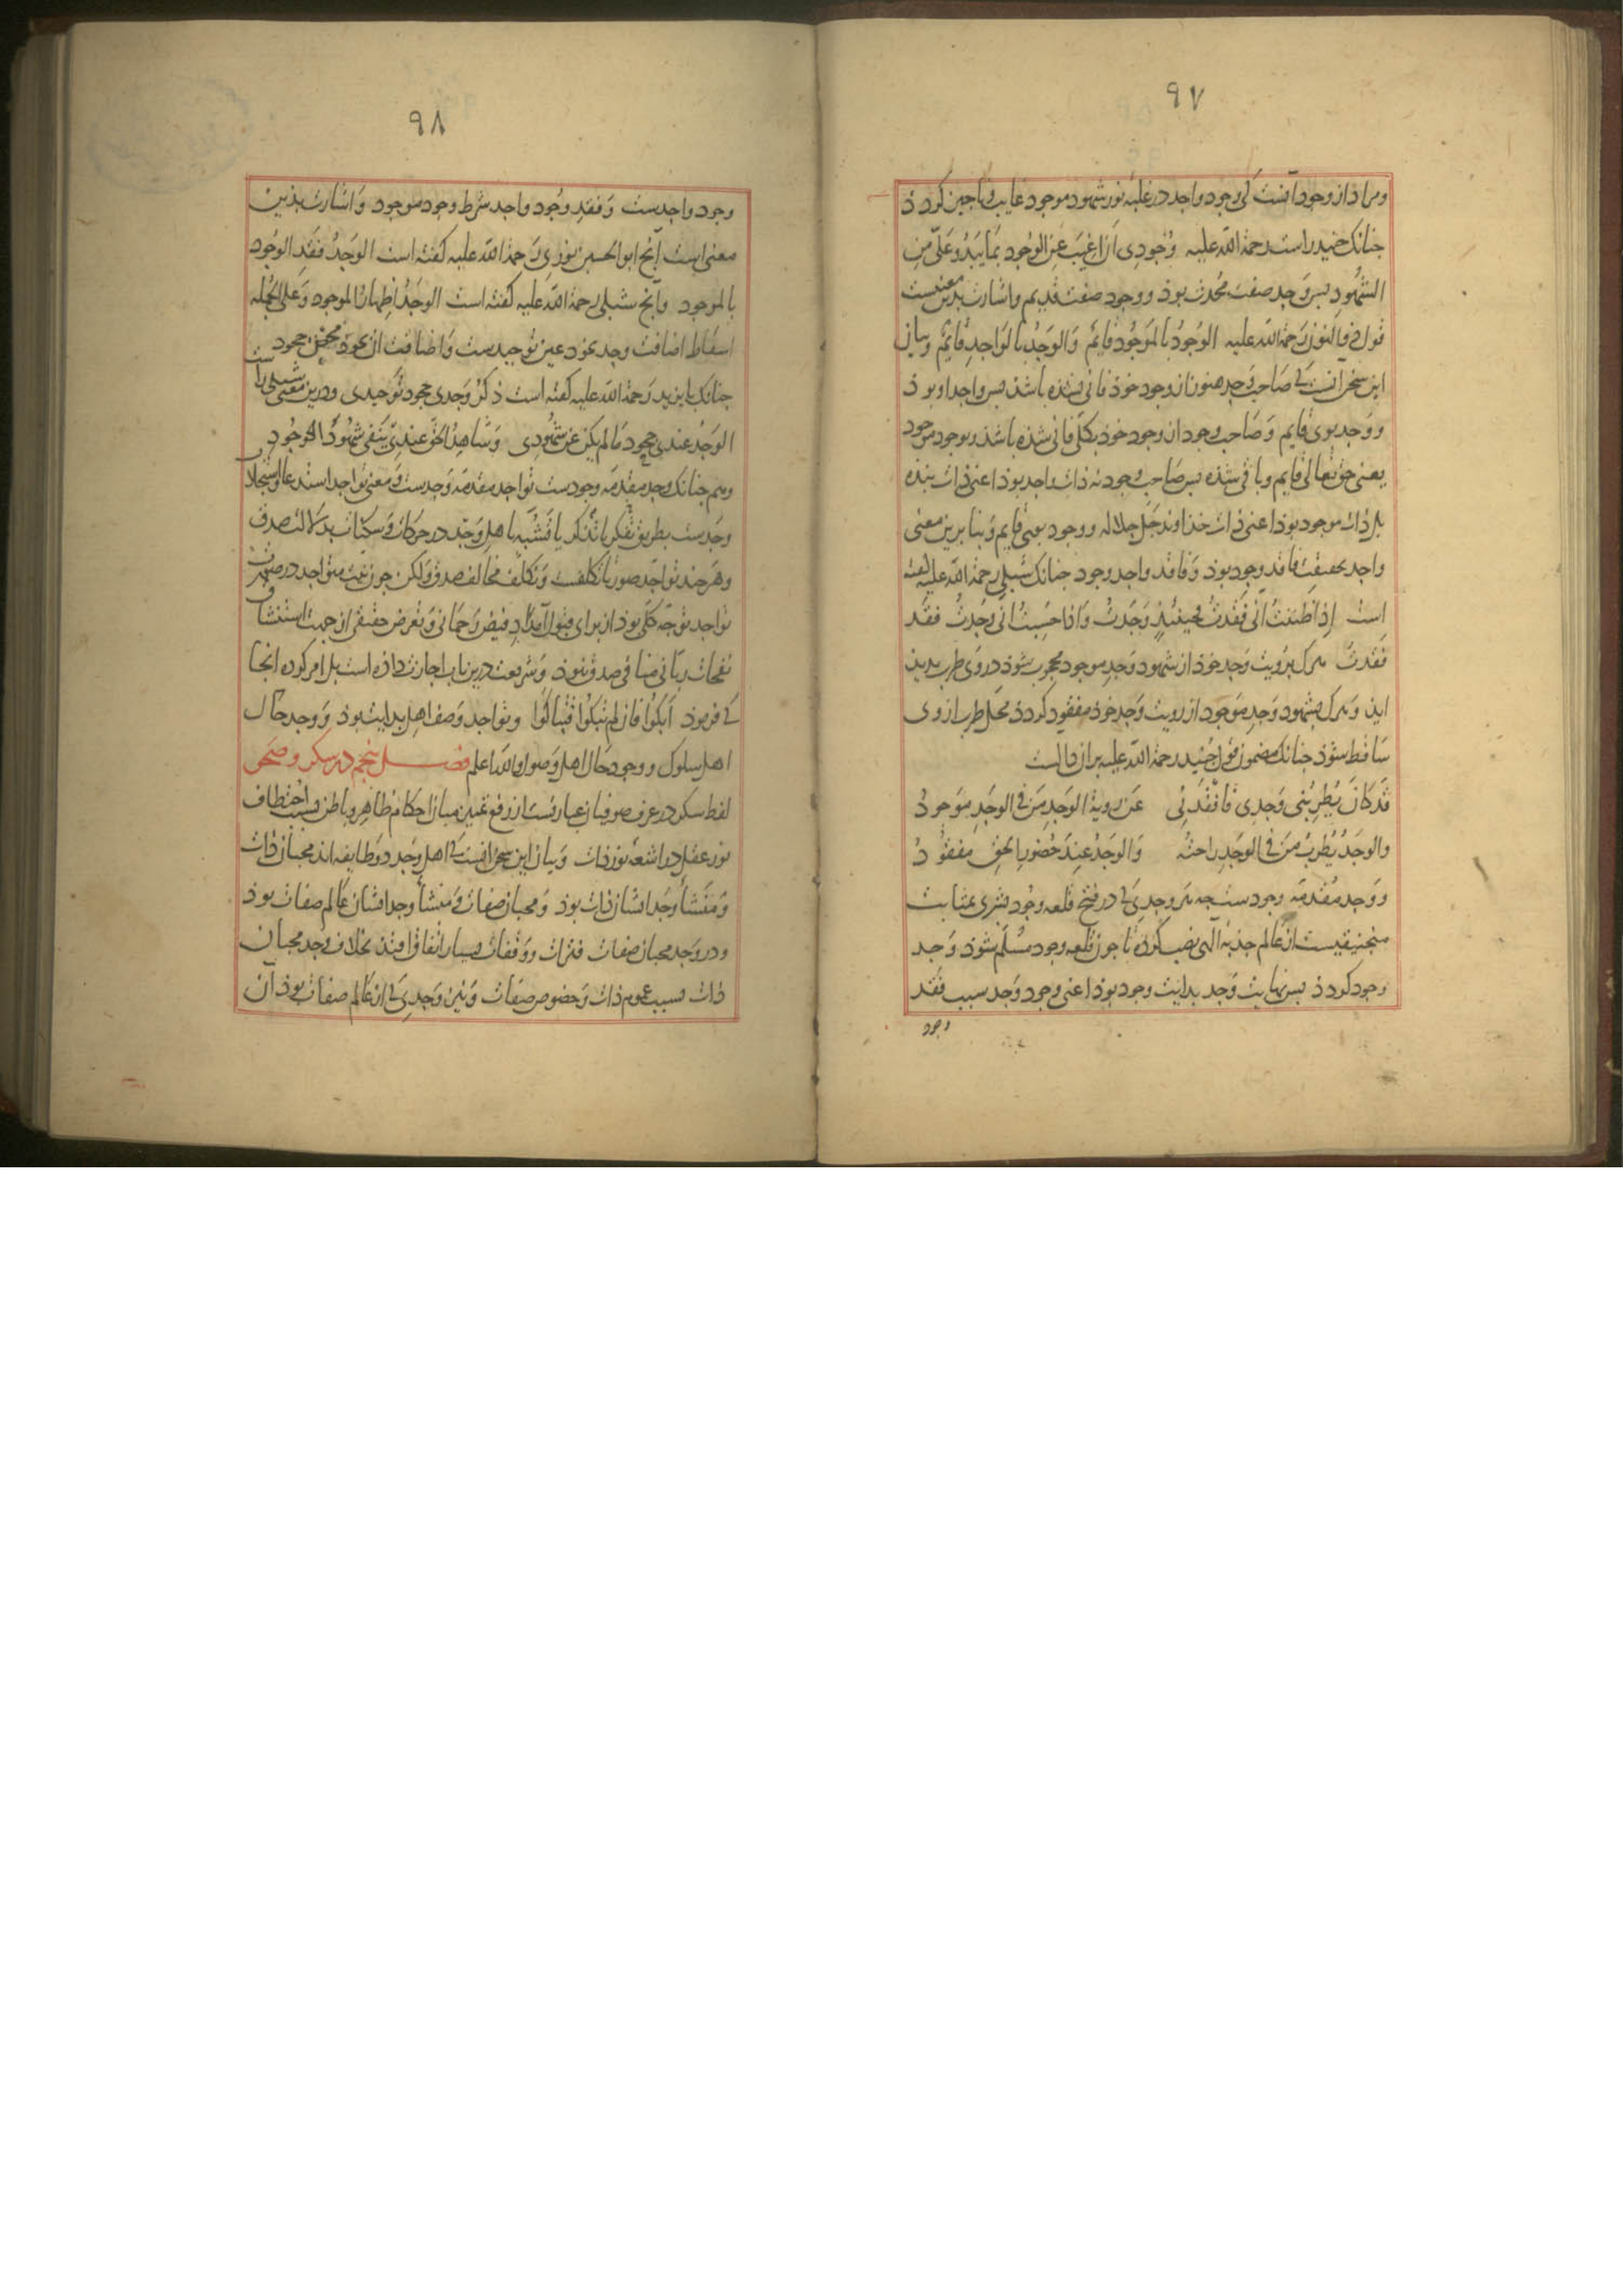 ٩٧
ومراد از وجود آنست کی وجود واجد در غلبه نور شهود موجود غایب و ناجیز کردذ
جنانک جنید راست رحمة الله علیه وُجُودِی اَن اَغیبَ عَنِ الوُجُودِ بمَا یَبدُو عَلَیَّ مِنَ
الشُهُودِ بس وَجد صفت مُحدَث بوذ و وجود صفت قدیم واشارت بدین معنیست
قول ذوالنون رَحمة الله علیه الوُجُودُ بالمَوجُودِ قایمٌ وَالوَجدُ بالوَاجِدِ قایمٌ وبیان
این سخن آنست کی صَاحب وَجد هنوز از وجود خوذ فانی نشده باشذ بس واجد او بوذ
ووَجد بوی قایم وَصَاحب وجود از وجود خوذ بکلّی فانی شذه باشذ وبوجود موجود
یعنی حق تعالی قایم وباقی شذه بس صَاحب وجود نه ذات واجد بوذ اعنی ذات بنذه
بل ذات موجود بوذ اعنی ذات خذاوند جَلّ جلاله ووجود بوی قایم وَبنا برین معنی
واجد بحقیقت فاقد وجود بوذ وَفاقد واجد وجود جنانک شبلی رحمة الله علیه گفته
است اِذا ظننتُ انّی فَقَدتُ فحینئِذٍ وَجَدتُ وَاذا حَسِبتُ انّی وَجَدتُ فقَد
فقَدتُ هرک برویت وَجد خوذ از شهود وَجدِ موجود محجوب شوذ در وَی طرب بدید
ایذ وَهرک بشهود وَجدِ مَوجود از رویت وَجد خوذ مفقود کردذ محل طرب از وی
سَاقط شوذ جنانک مضمون قول جُنید رحمة الله علیه بران دالست
قَد کانَ یُطرِبُنی وَجدِی فَافقَدَنِی عَن رویةِ الوَجدِ مَن فی الوَجدِ مَوجودُ
والوَجدُ یُطربُ مَن فی الوَجدِ راحتُهُ وَالوَجدُ عِندَ حُضورِ الحَقِّ مفقُودُ
ووَجد مُقدمَه وجودست جه هر وجدی کی در فتح قلعه وجُود بشری بمثابت
منجنیقیست از عالم جذبه الهی نصب کرده تا جون قلعه وجود مسُلّم شوذ وَجد
وجود کردذ بس نهایت وَجد بدایت وجود بوذ اعنی وجود وَجد سبب فَقد
وجود
٩٨
وجود واجدست وَفقدِ وجُود واجد شرط وجود موجود وَاشارت بذین
معنی است آنج ابوالحسین نوری رَحمة الله علیه کفته است الوَجدُ فقَد الوُجُود
بالموجود وآنج شبلی رحمة الله علیه کفته است الوَجدُ اِظهارُ الموجود وَعلی الجمله
اسقاط اضافت وجد بخوذ عین توحیدست وَاضافت ان بخوذ محض جحودست
جنانک بایزید رَحمة الله علیه کفته است ذکرُ وَجدی جحود توحیدی ودرین معنی شبلی راست
الوَجدُ عندی جحودٌ مَالم یکن عن شُهُودی وَشَاهِدُ الحَقِّ عندی یَنفی شُهُودَ الوُجُودِ
وهم جنانک وجد مقدمَه وجودست تواجد مقدمَه وَجدست وَمعنی تواجد استدعا واستجلاب
وَجدست بطریق تفکر یا تَذکر یا تَشبُّه باهل وَجد در حرکات وَسکنات بدلالت صدق
وهَرجند تواجد صورتًا تکلفست وَتکلّف مخالف صدق ولکن جون نیت متواجد در صورت
تواجد توجّه کلّی بوذ از برای قبول اَمدادِ فیض رَحمانی وَتعَرض حقیقی از جهت استنشاق
نفحات ربّانی منافی صدق نبوذ وَشریعت درین باب اجازت داذه است بل امر کرده انجا
کی فرموذ اَبکُوا فان لم تبکُوا فتباکَوا وتواجد وَصف اهل بدایت بوذ ووجد حَال
اهل سلوک ووجود حَال اهل وَصول والله اعلم فصــل پنجم در سکر وصَحو
لفظ سکر در عرف صوفیان عبارتست از رفع تمیز میان احکام ظاهر وباطن بسبب اختطاف
نور عقل در اشعه نور ذات وَبیان این سخن آنست کی اهل وَجد دو طایفه اند محبان ذات
وَمَنشأ وَجد ایشان ذات بوذ وَمحبان صفات ومَنشأ وجد ایشان عَالم صفات بوذ
ودر وَجد محبان صفات فترات ووَقفات بسیار اتفاق افتذ بخلاف وَجد محبان
ذات بسبب عموم ذات وَخصوص صفات وَنیز وَجدی کی از عَالم صفات بوذ آن